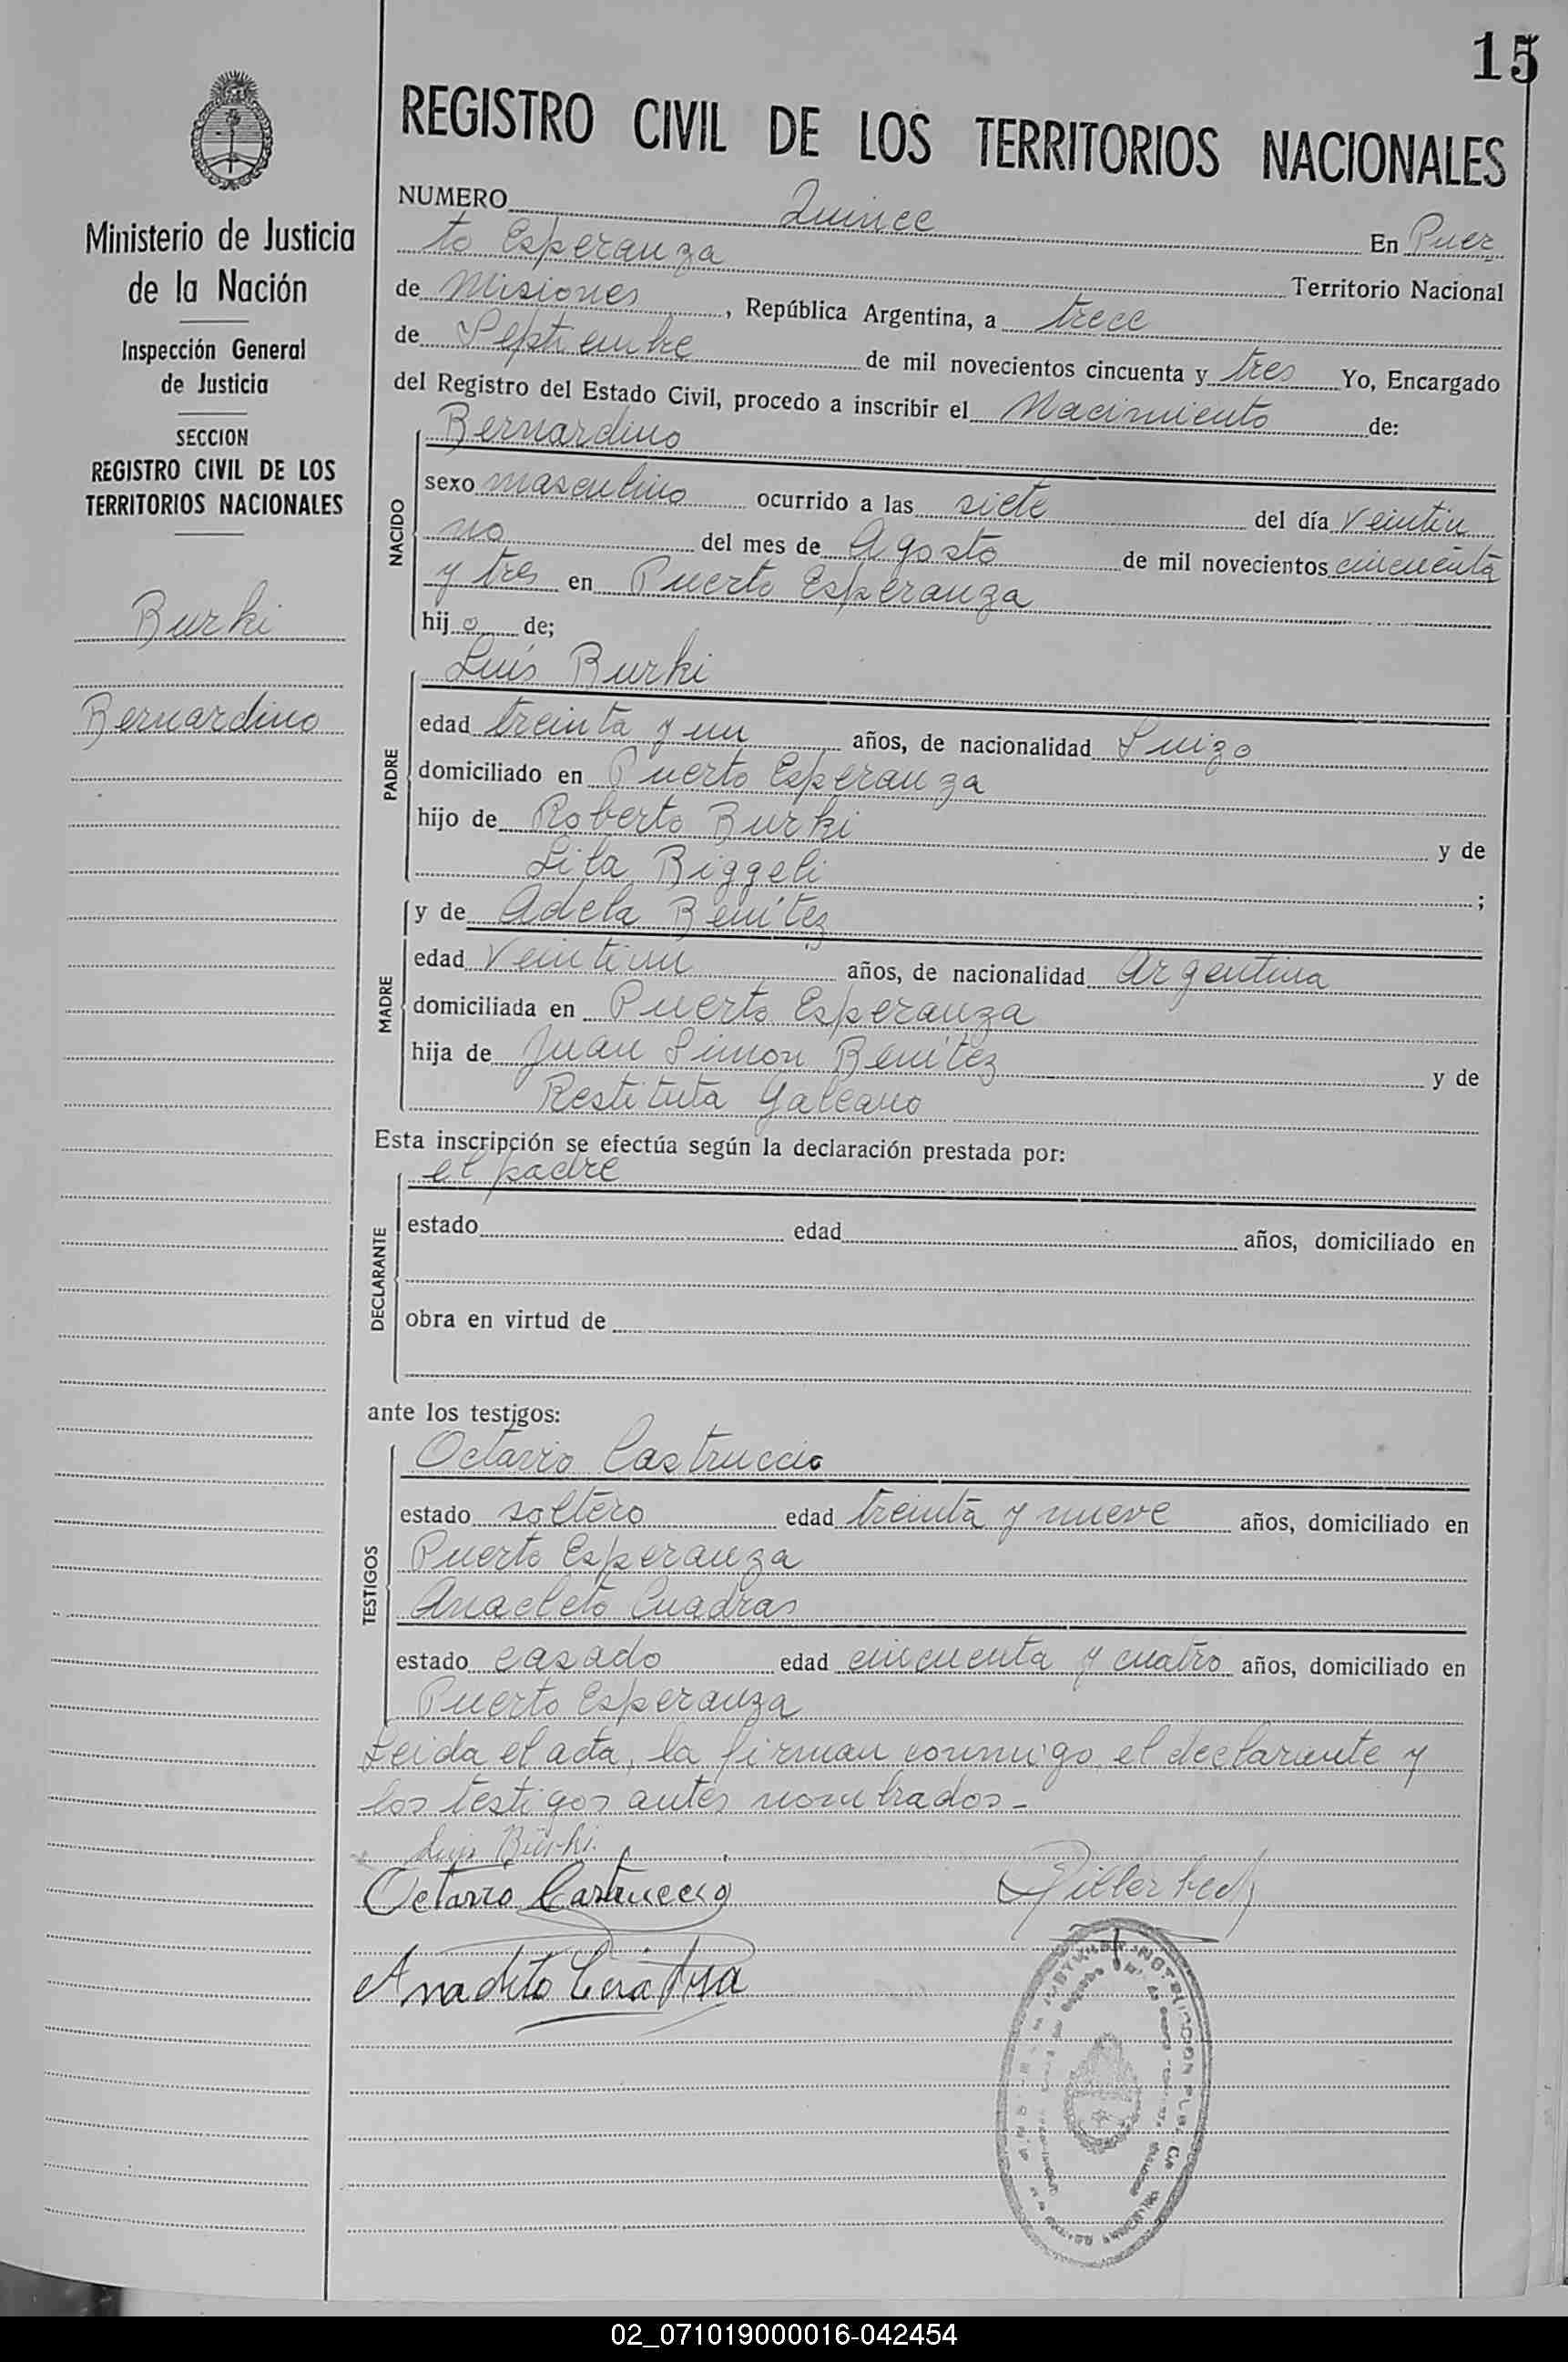 15
REGISTRO CIVIL DE LOS TERRITORIOS NACIONALES
Ministerio de Justicia
de la Nación
Inspección General
de Justicia
SECCION
REGISTRO CIVIL DE LOS
TERRITORIOS NACIONALES
Burki
Bernardino
NUMERO Quince En Puer
to Esperanza Territorio Nacional
de Misiones, República Argentina, a trece
de Septiembre de mil novecientos cincuenta y tres Yo, Encargado
del Registro del Estado Civil, procedo a inscribir el Nacimiento de:
NACIDO
Bernardino
sexo masculino ocurrido a las siete del día veintiu
no del mes de Agosto de mil novecientos cincuenta
y tres en Puerto Esperanza
hijo de;
PADRE
Luis Burki
edad treinta y un años, de nacionalidad Suizo
domiciliado en Puerto Esperanza
hijo de Roberto Burki y de
Lila Biggeli ;
MADRE
y de Adela Benítez
edad veintiun años, de nacionalidad Argentina
domiciliada en Puerto Esperanza
hija de Juan Simon Benítez y de
Restituta Galeano
Esta inscripción se efectúa según la declaración prestada por:
DECLARANTE
el padre
estado edad años, domiciliado en
obra en virtud de
ante los testigos:
TESTIGOS
Octavio Castruccio
estado soltero edad treinta y nueve años, domiciliado en
Puerto Esperanza
Anacleto Cuadras
estado casado edad cincuenta y cuatro años, domiciliado en
Puerto Esperanza
Leida el acta, la firman conmigo, el declarante y
los testigos antes nombrados-
Luis Bürki.
Octavio Castruccio
Anacleto
02_071019000016-042454